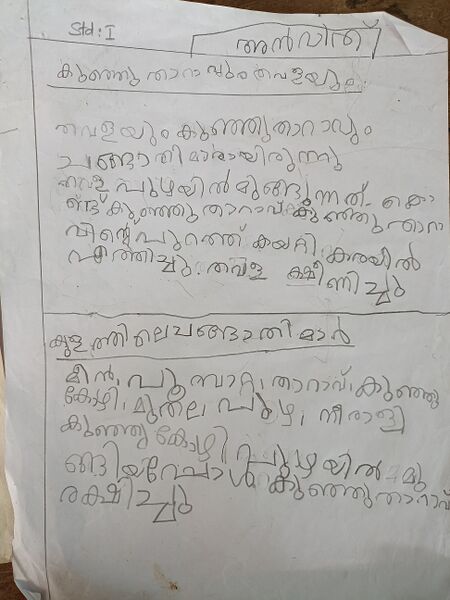 Std: I
അൻവിത്ത്
കുഞ്ഞുതാറാവും തവളയും
തവളയും കുഞ്ഞുതാറാവും
ചങ്ങാതിമാരായിരുന്നു
തവള പുഴയിൽ മുങ്ങുന്നത് കൊ
ണ്ട് കുഞ്ഞുതാറാവ് കുഞ്ഞുതാറാ
വിന്റെ പുറത്ത് കയറ്റി കരയിൽ
എത്തിച്ചു. തവള ക്ഷീണിച്ചു
കുളത്തിലെ ചങ്ങാതിമാർ
മീൻ, പൂമ്പാറ്റ, താറാവ്, കുഞ്ഞു
കോഴി, മുതല പുഴ, നീരാളി
കുഞ്ഞു കോഴി പുഴയിൽ മു
ങ്ങിയപ്പോൾ കുഞ്ഞുതാറാവ്
രക്ഷിച്ചു